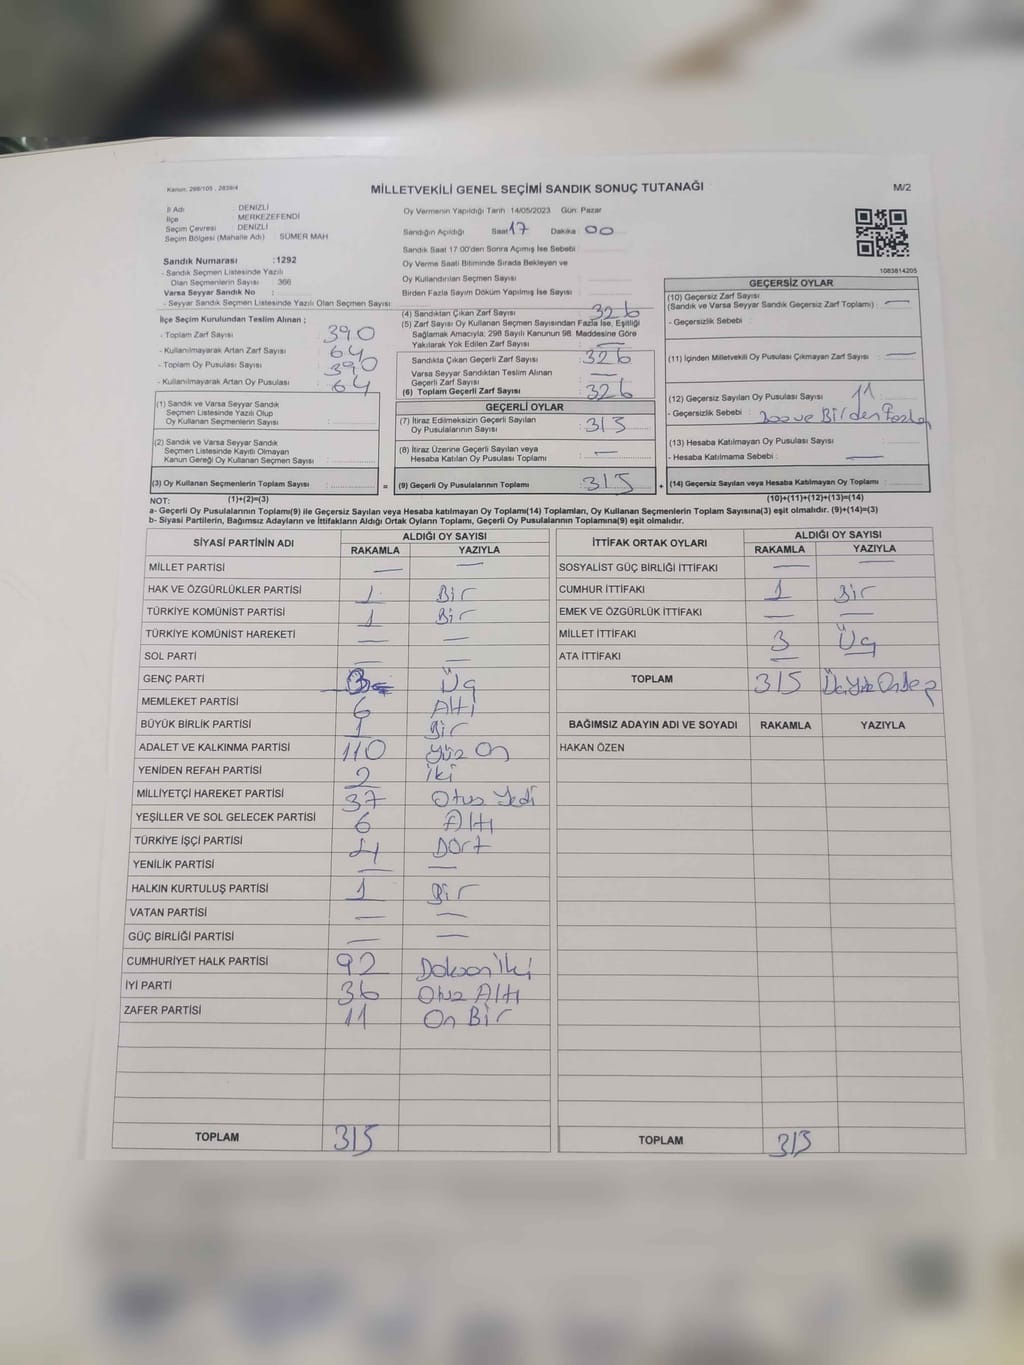 Kanun: 298/105 , 2839/4
MİLLETVEKİLİ GENEL SEÇİMİ SANDIK SONUÇ TUTANAĞI
M/2
İl Adı : DENİZLİ
İlçe : MERKEZEFENDİ
Seçim Çevresi : DENİZLİ
Seçim Bölgesi (Mahalle Adı) : SÜMER MAH
Sandık Numarası :1292
- Sandık Seçmen Listesinde Yazılı
Olan Seçmenlerin Sayısı 366
Varsa Seyyar Sandık No :
- Seyyar Sandık Seçmen Listesinde Yazılı Olan Seçmen Sayısı:
Oy Vermenin Yapıldığı Tarih 14/05/2023 Gün: Pazar
Sandığın Açıldığı Saat 17 Dakika 00
Sandık Saat 17 00'den Sonra Açımış İse Sebebi :
Oy Verme Saati Bitiminde Sırada Bekleyen ve
Oy Kullandırılan Seçmen Sayısı
Birden Fazla Sayım Döküm Yapılmış İse Sayısı :
1083814205
İlçe Seçim Kurulundan Teslim Alınan ;
- Toplam Zarf Sayısı : 390
- Kullanılmayarak Artan Zarf Sayısı : 64
- Toplam Oy Pusulası Sayısı : 390
- Kullanılmayarak Artan Oy Pusulası : 64
(1) Sandık ve Varsa Seyyar Sandık
Seçmen Listesinde Yazılı Olup
Oy Kullanan Seçmen Sayısı :
(2) Sandık ve Varsa Seyyar Sandık
Seçmen Listesinde Kayıtlı Olmayan
Kanun Gereği Oy Kullanan Seçmen Sayısı :
(3) Oy Kullanan Seçmenlerin Toplam Sayısı :
(4) Sandıktan Çıkan Zarf Sayısı : 326
(5) Zarf Sayısı Oy Kullanan Seçmen Sayısından Fazla İse, Eşitliği
Sağlamak Amacıyla; 298 Sayılı Kanunun 98. Maddesine Göre
Yakılarak Yok Edilen Zarf Sayısı : —
Sandıkta Çıkan Geçerli Zarf Sayısı : 326
Varsa Seyyar Sandıktan Teslim Alınan
Geçerli Zarf Sayısı : —
(6) Toplam Geçerli Zarf Sayısı : 326
GEÇERLİ OYLAR
(7) İtiraz Edilmeksizin Geçerli Sayılan
Oy Pusulalarının Sayısı : 315
(8) İtiraz Üzerine Geçerli Sayılan veya
Hesaba Katılan Oy Pusulası Toplamı : —
= (9) Geçerli Oy Pusulalarının Toplamı : 315 +
GEÇERSİZ OYLAR
(10) Geçersiz Zarf Sayısı
(Sandık ve Varsa Seyyar Sandık Geçersiz Zarf Toplamı) : —
- Geçersizlik Sebebi :
(11) İçinden Milletvekili Oy Pusulası Çıkmayan Zarf Sayısı : —
(12) Geçersiz Sayılan Oy Pusulası Sayısı : 11
- Geçersizlik Sebebi : ve Birden Fazla
(13) Hesaba Katılmayan Oy Pusulası Sayısı :
- Hesaba Katılmama Sebebi : —
(14) Geçersiz Sayılan veya Hesaba Katılmayan Oy Toplamı :
NOT: (1)+(2)=(3) (10)+(11)+(12)+(13)=(14)
a- Geçerli Oy Pusulalarının Toplamı(9) ile Geçersiz Sayılan veya Hesaba katılmayan Oy Toplamı(14) Toplamları, Oy Kullanan Seçmenlerin Toplam Sayısına(3) eşit olmalıdır. (9)+(14)=(3)
b- Siyasi Partilerin, Bağımsız Adayların ve İttifakların Aldığı Ortak Oyların Toplamı, Geçerli Oy Pusulalarının Toplamına(9) eşit olmalıdır.
SİYASİ PARTİNİN ADI ALDIĞI OY SAYISI
RAKAMLA YAZIYLA
MİLLET PARTİSİ — —
HAK VE ÖZGÜRLÜKLER PARTİSİ 1 Bir
TÜRKİYE KOMÜNİST PARTİSİ 1 Bir
TÜRKİYE KOMÜNİST HAREKETİ — —
SOL PARTİ — —
GENÇ PARTİ 3 Üç
MEMLEKET PARTİSİ 6 Altı
BÜYÜK BİRLİK PARTİSİ 1 Bir
ADALET VE KALKINMA PARTİSİ 110 Yüz On
YENİDEN REFAH PARTİSİ 2 İki
MİLLİYETÇİ HAREKET PARTİSİ 37 Otuz Yedi
YEŞİLLER VE SOL GELECEK PARTİSİ 6 Altı
TÜRKİYE İŞÇİ PARTİSİ 4 Dört
YENİLİK PARTİSİ — —
HALKIN KURTULUŞ PARTİSİ 1 Bir
VATAN PARTİSİ — —
GÜÇ BİRLİĞİ PARTİSİ — —
CUMHURİYET HALK PARTİSİ 92 Doksan İki
İYİ PARTİ 36 Otuz Altı
ZAFER PARTİSİ 11 On Bir
TOPLAM 315
İTTİFAK ORTAK OYLARI ALDIĞI OY SAYISI
RAKAMLA YAZIYLA
SOSYALİST GÜÇ BİRLİĞİ İTTİFAKI — —
CUMHUR İTTİFAKI 1 Bir
EMEK VE ÖZGÜRLÜK İTTİFAKI — —
MİLLET İTTİFAKI 3 Üç
ATA İTTİFAKI — —
TOPLAM 315 Üçyüz Onbeş
BAĞIMSIZ ADAYIN ADI VE SOYADI RAKAMLA YAZIYLA
HAKAN ÖZEN
TOPLAM 315